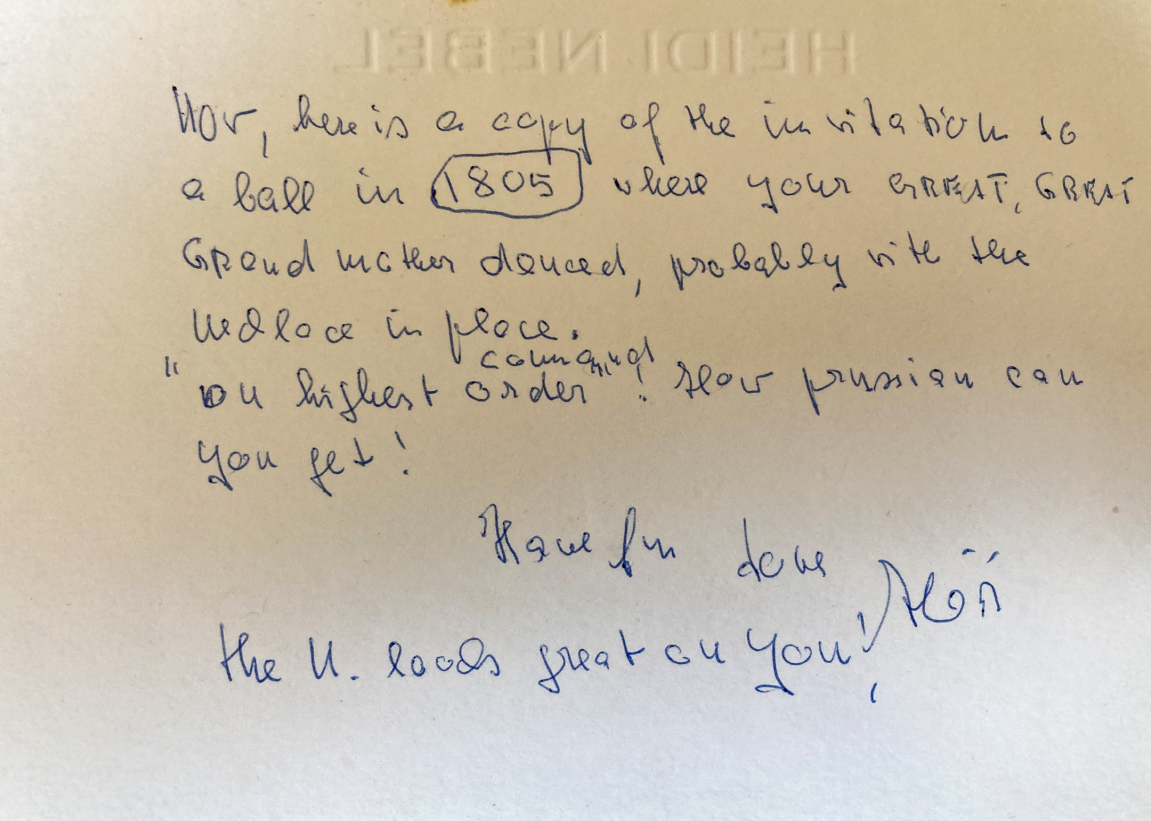 HEIDI NEBEL
Now, here is a copy of the invitation to
a ball in 1805 where your GREAT, GREAT
Grand mother danced, probably with the
in place.
command
"on highest order"! How prussian can
you get!
Have fun
the N. looks great on you!